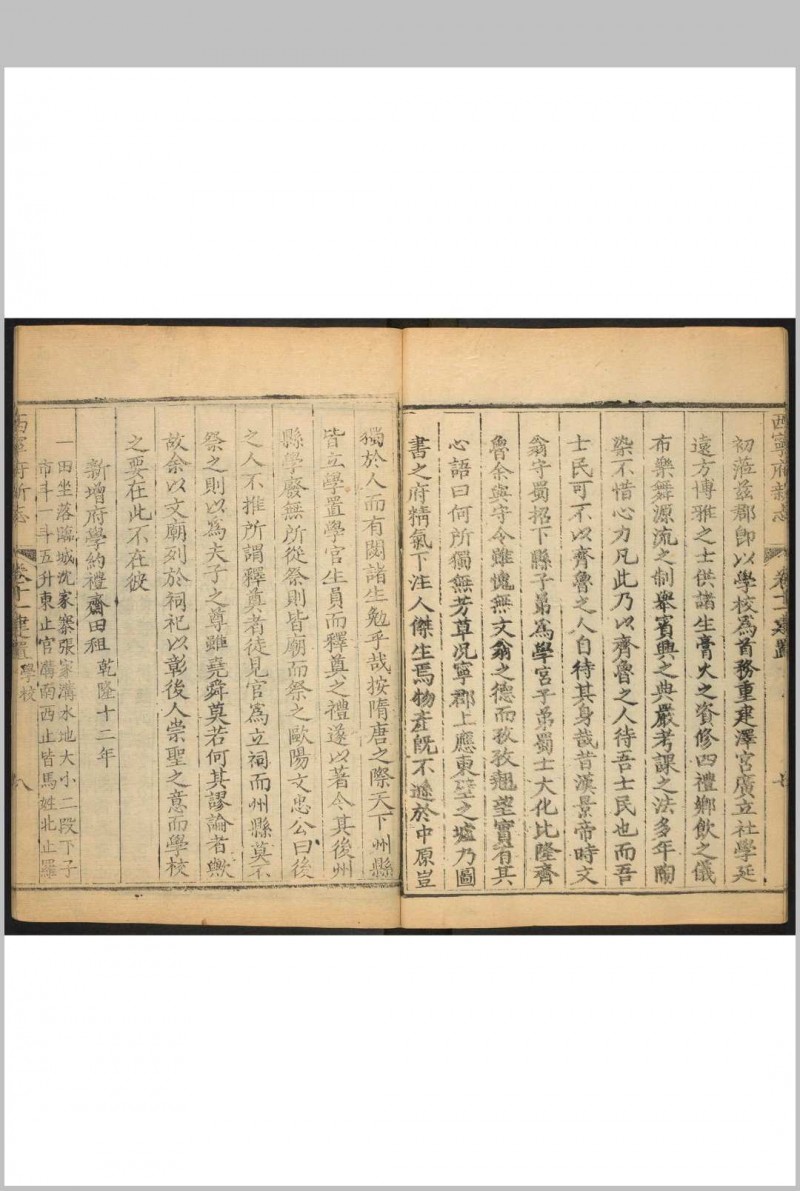 西寧府新志
卷十一建置
七
初蒞茲郡卽以學校爲首務重建澤宮廣立社學延
遠方博雅之士供諸生膏火之資修四禮鄉飲之儀
布樂舞源流之制舉賓興之典嚴考課之法多年陶
染不惜心力凡此乃以齊魯之人待吾士民也而吾
士民可不以齊魯之人自待其身哉昔漢景帝時文
翁守蜀招下縣子弟爲學宮子弟蜀士大化比隆齊
魯余與守令雖愧無文翁之德而孜孜翹望實有其
心語曰何所獨無芳草况寧郡上應東壁之墟乃圖
書之府精氣下注人傑生焉物產旣不遜於中原豈
獨於人而有闕諸生勉乎哉按隋唐之際天下州縣
皆立學置學官生員而釋奠之禮遂以著令其後州
縣學廢無所從祭則皆廟而祭之歐陽文忠公曰後
之人不推所謂釋奠者徒見官爲立祠而州縣莫不
祭之則以爲夫子之尊雖堯舜莫若何其謬論者歟
故余以文廟列於祠祀以彰後人崇聖之意而學校
之要在此不在彼
新增府學約禮齋田租 乾隆十二年
一田坐落臨城沈家寨張家溝水地大小二段下子
市斗一斗五升東止官溝南西止皆馬姓北止羅
西寧府新志
卷十一建置 學校
八